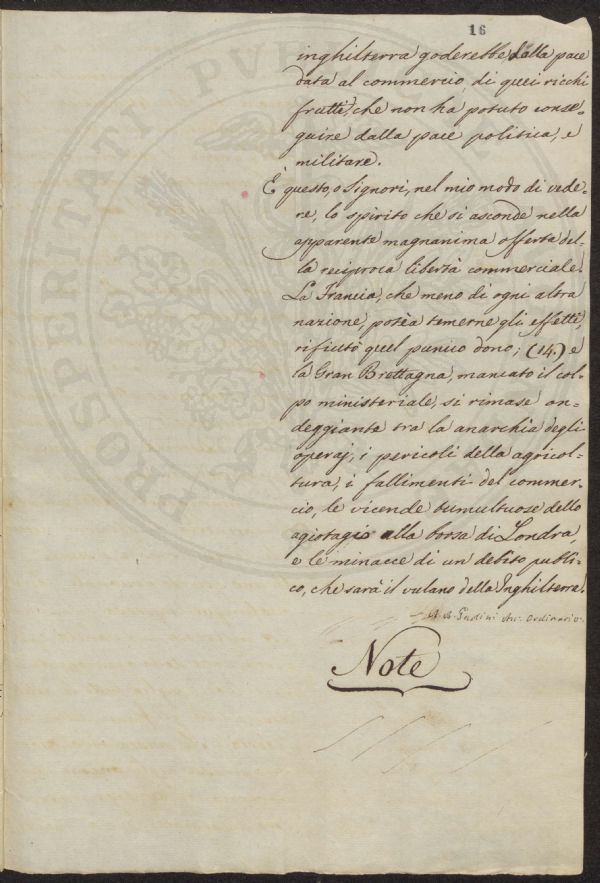 16
inghilterra goderebbe dalla pace
data al commercio, di quei ricchi
frutti, che non ha potuto conse-
guire dalla pace politica, e
militare.
È questo, o Signori, nel mio modo di vede-
re, lo spirito che si asconde nella
apparente magnanima offerta del-
la reciproca libertà commerciale.
La Francia, che meno di ogni altra
nazione, potea temerne gli effetti,
rifiutò quel punico dono; (14.) e
la Gran Brettagna, mancato il col-
po ministeriale, si rimase on-
deggiante tra la anarchia degli
operaj, i pericoli della agricol-
tura, i fallimenti del commer-
cio, le vicende tumultuose dello
agiotagio alla borsa di Londra,
e le minacce di un debito publi-
co, che sarà il vulcano della Inghilterra.
Ordinario.
Note
PROSPERITATI